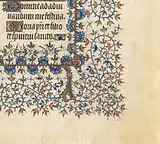 Domine ad adiu
uandum me festina.
Gloria patri et filio
et spiritui sancto.